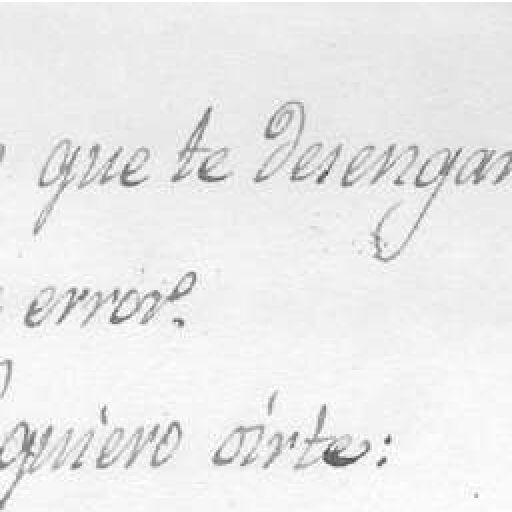 que te desengan
error.
quiero oirte: